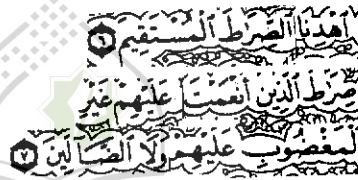 ٱهْدِنَا ٱلصِّرَٰطَ ٱلْمُسْتَقِيمَ ٦
صِرَٰطَ ٱلَّذِينَ أَنْعَمْتَ عَلَيْهِمْ غَيْرِ
ٱلْمَغْضُوبِ عَلَيْهِمْ وَلَا ٱلضَّآلِّينَ ٧